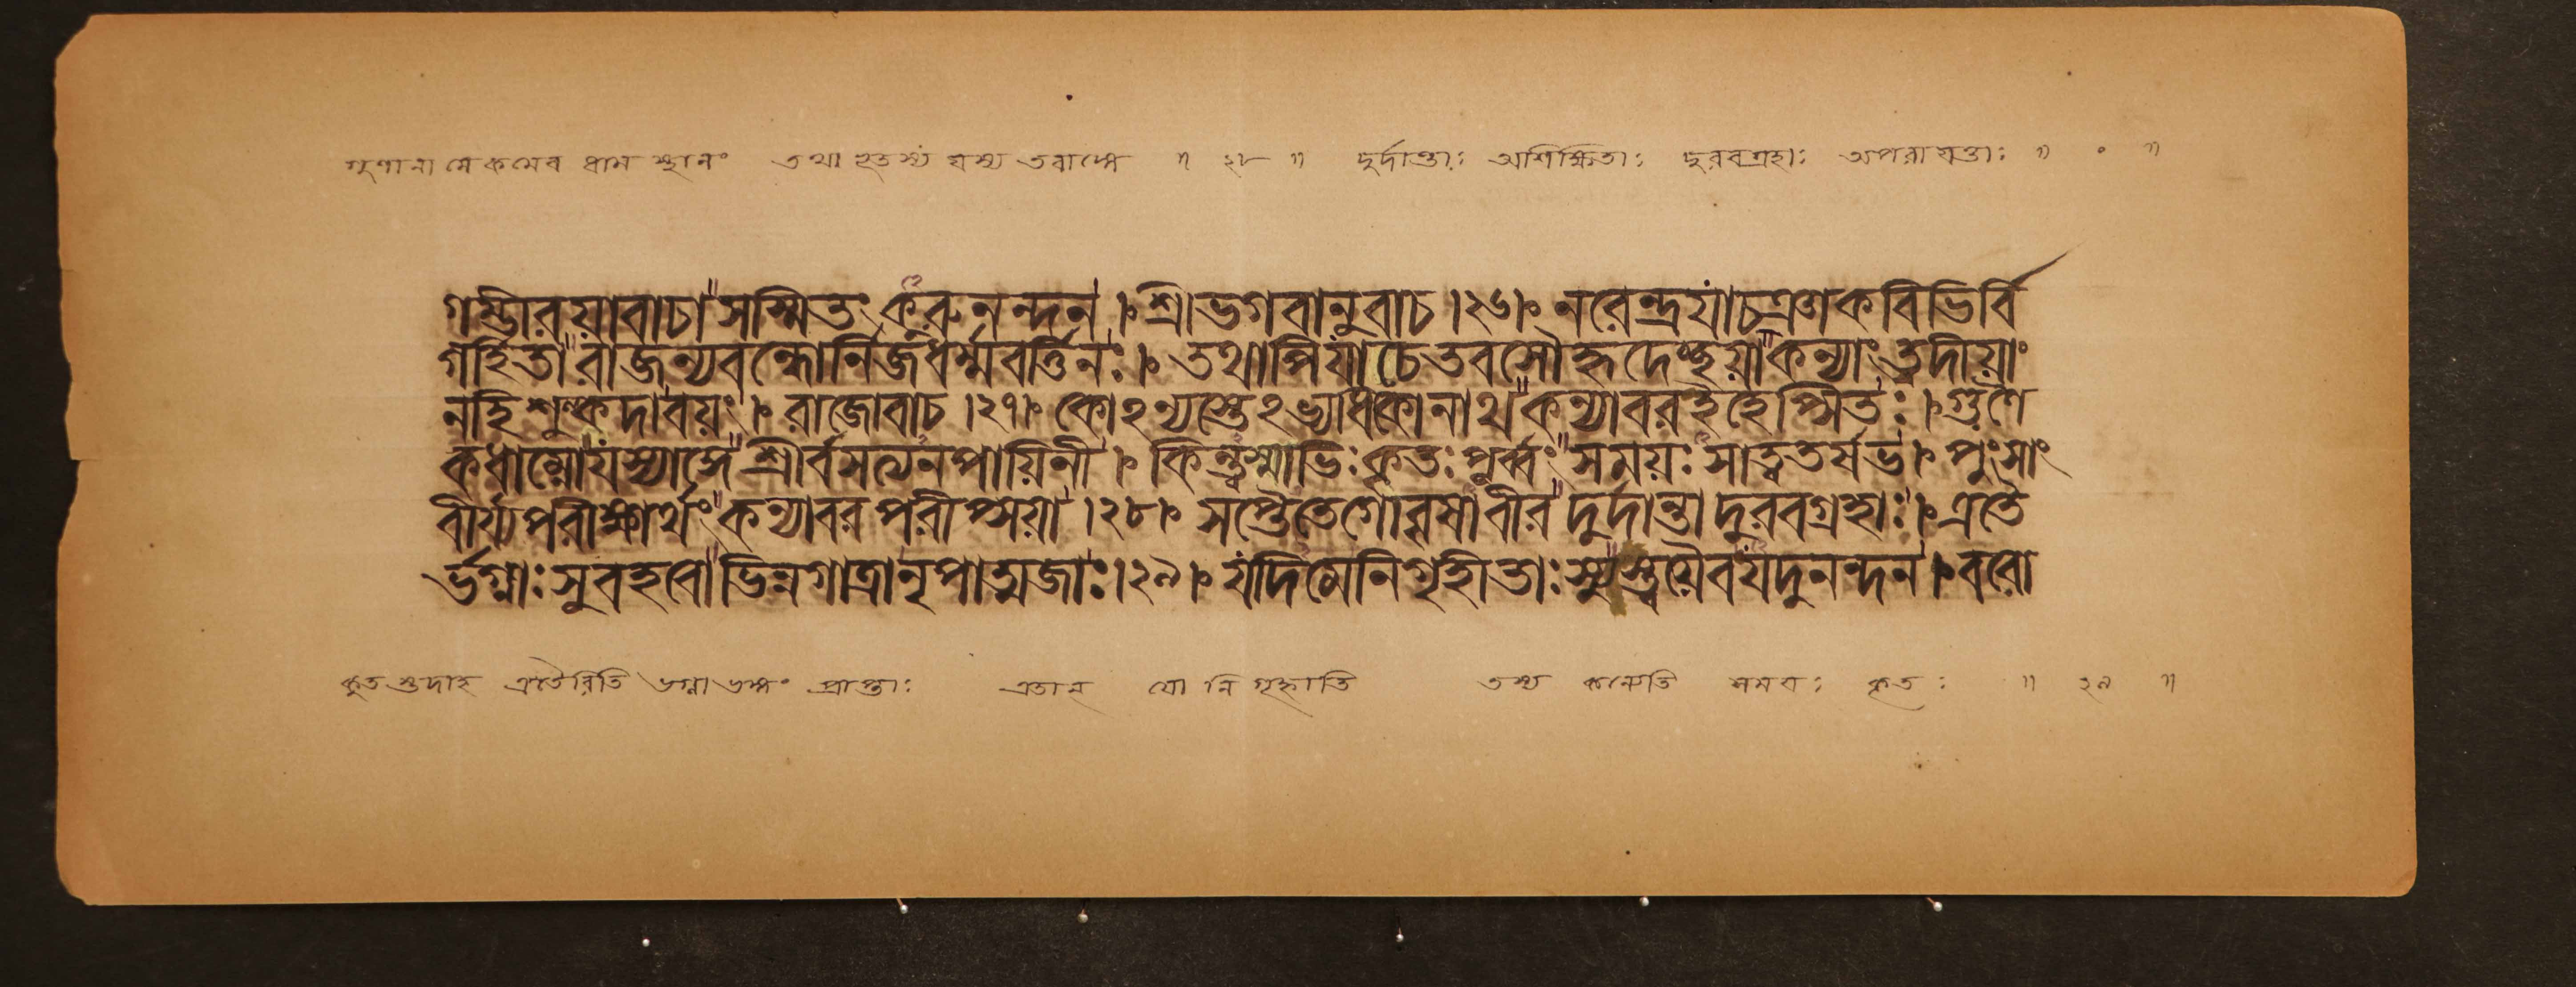 গুণানামেকমেব ধাম স্থানং তথাহৃতস্যং যস্য তবাঙ্গে ॥ ২৮ ॥ দুর্দান্তাঃ অশিক্ষিতাঃ দুরবগ্রহাঃ অপরাযত্তাঃ ॥ ० ॥
গম্ভীরয়াবাচা"সস্মিতং কুরুনন্দন । শ্রীভগবানুবাচ ।২৬। নরেন্দ্রযাচঞাকবিভির্বি
গর্হিতা"রাজন্যবন্ধোর্নিজধর্ম্মবর্ত্তিনঃ । তথাপিযাচেতবসৌহৃদেচ্ছয়া"কন্যাং ত্বদীয়াং
নহি শুল্কদাবয়ং । রাজোবাচ ।২৭। কোঽন্যস্তেঽভ্যধিকোনাথ"কন্যাবরইহেপ্সিতঃ । গুণৈ
কধাম্নোযস্যাঙ্গে"শ্রীর্বসত্যনপায়িনী । কিন্ত্বস্মাভিঃ কৃতঃ পূর্ব্বং"সময়ঃ সাত্বতর্ষভ । পুংসাং
বীর্য্যপরীক্ষার্থং"কন্যাবরপরীপ্সয়া ।২৮। সপ্তৈতেগোবৃষাবীর"দুর্দান্তাদুরবগ্রহাঃ । এতৈ
র্ভগ্নাঃ সুবহবো"ভিন্নগাত্রানৃপাত্মজাঃ ।২৯। যদিমেনিগৃহীতাঃ স্যু"স্ত্বয়ৈবযদুনন্দন । বরো
কুতস্তদাহ এতৈরিতি ভগ্নাভঙ্গং প্রাপ্তাঃ এতান্ যো নিগৃহ্নাতি তস্য কন্যেতি সময়ঃ কৃতঃ ॥ ২৯ ॥